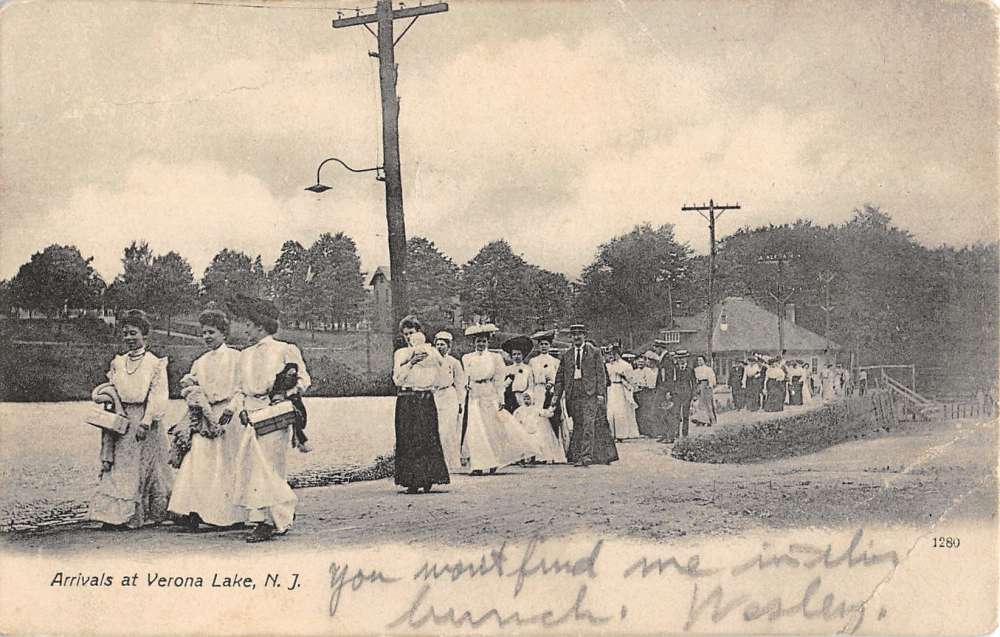 1280
Arrivals at Verona Lake, N. J.
You won't find me in this
bunch. Wesley.